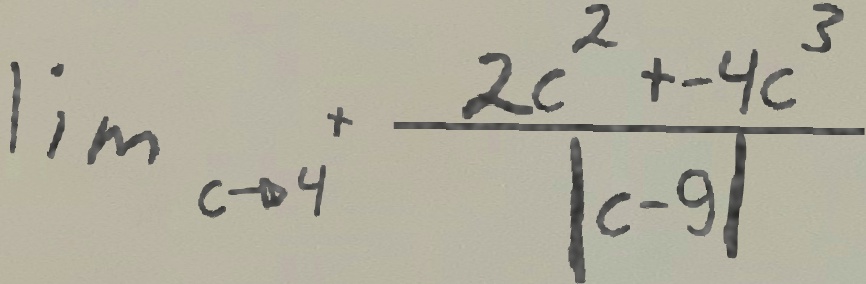 \lim_{c \to 4^+} \frac{2c^2 + -4c^3}{|c-9|}